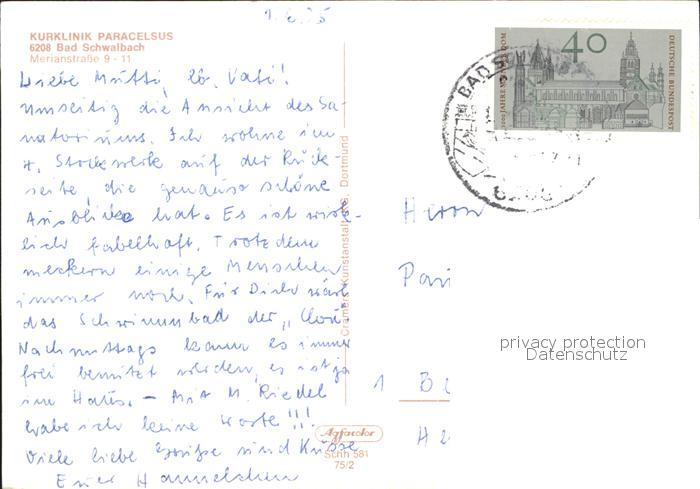 1.6.75
KURKLINIK PARACELSUS
6208 Bad Schwalbach
Merianstraße 9 - 11
Liebe Mutti, lb. Vati!
Umseitig die Ansicht des Sa-
natoriums. Ich wohne im
4. Stockwerk auf der Rück-
seite, die genauso schöne
Ausblicke hat. Es ist wirk-
lich fabelhaft. Trotzdem
meckern einige Menschen
immer noch. Für Dich wäre
das Schwimmbad der „Clou"
Nachmittags kann es immer
frei benutzt werden, es ist ja
im Haus. – Mit M. Riedel
habe ich keine Worte!!!
Viele liebe Grüße und Küsse
Euer Hannelchen
Cramers Kunstanstalt KG, Dortmund
Agfacolor
Schh 581
75/2
40
DEUTSCHE BUNDESPOST
1000 JAHRE MAINZER DOM
BAD SCHWALBACH
6208
Herrn
1 B
privacy protection
Datenschutz